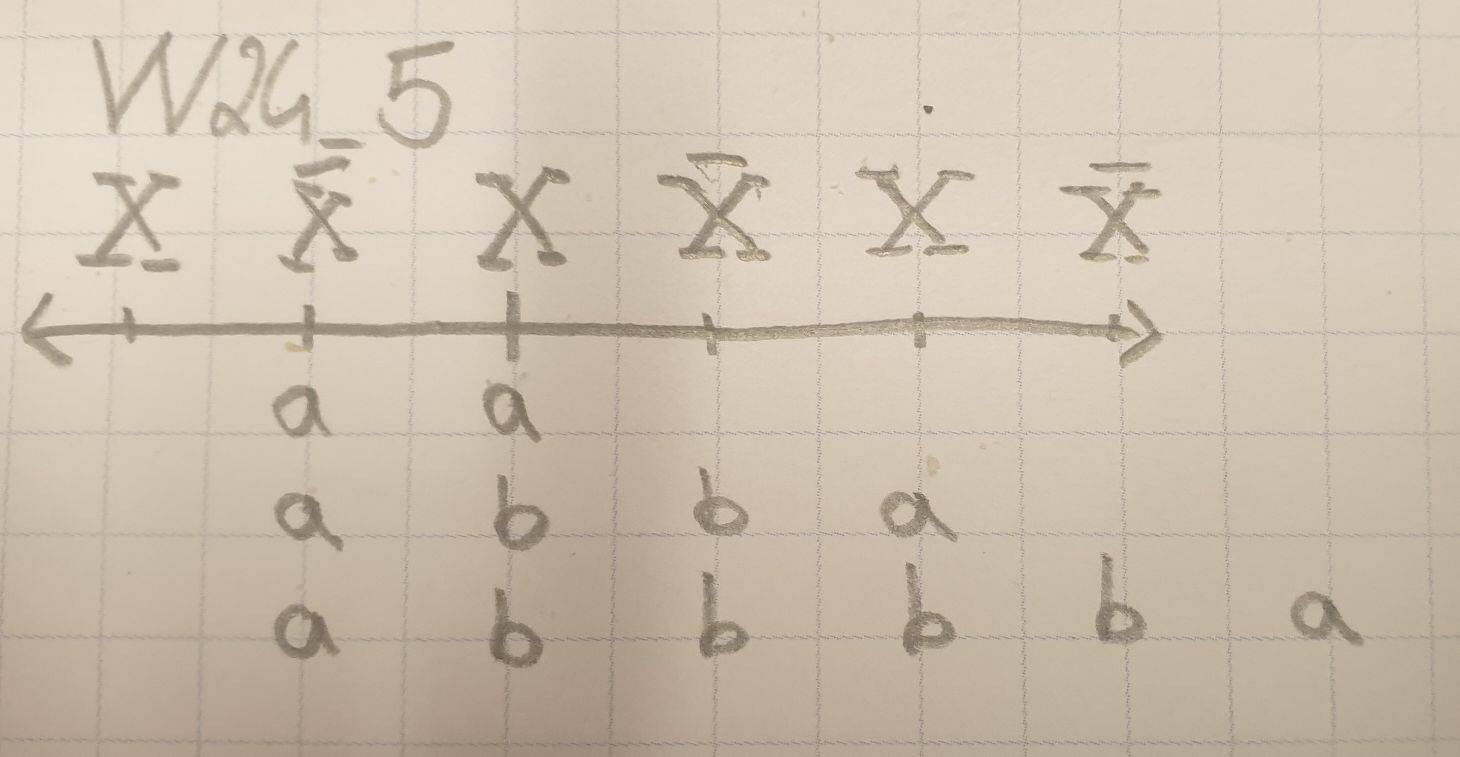 W24_5
X X̄ X X̄ X X̄
a a
a b b a
a b b b b a